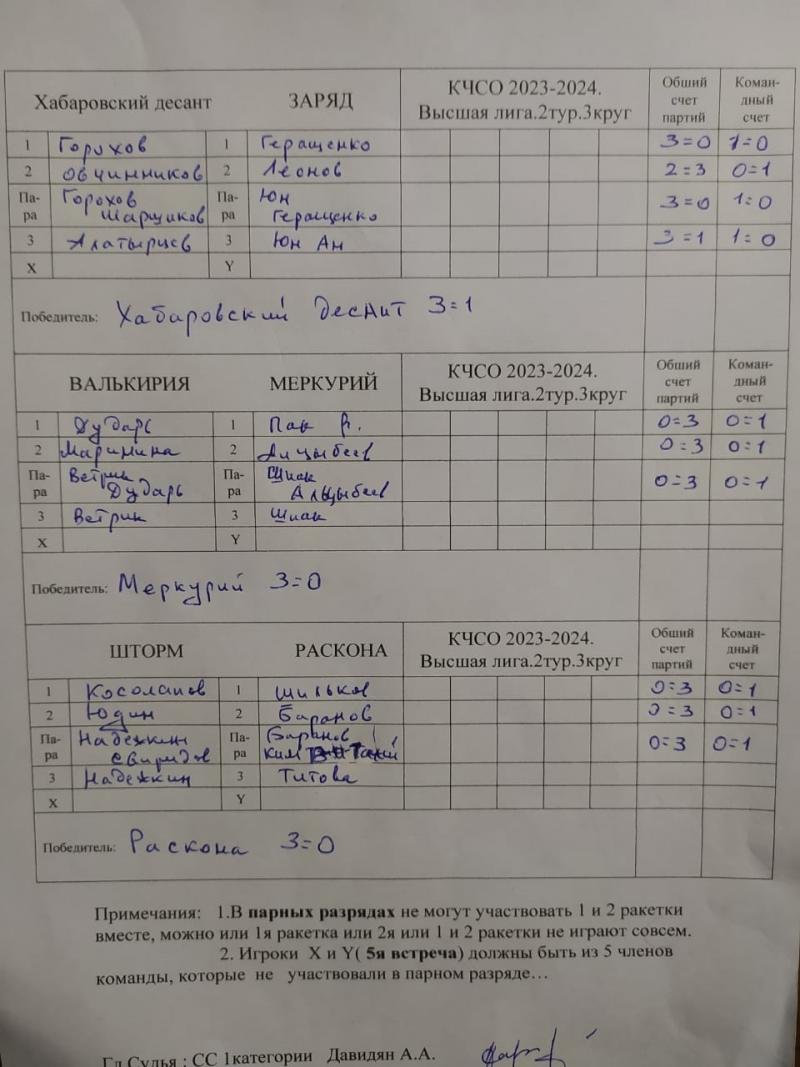 Хабаровский десант ЗАРЯД КЧСО 2023-2024. Общий Коман-
Высшая лига.2тур.3круг счет дный
партий счет
1 Горохов 1 Геращенко 3=0 1=0
2 Овчинников 2 Леонов 2=3 0=1
Па- Горохов Па- Юн 3=0 1=0
ра Шарщиков ра Геращенко
3 Алатырцев 3 Юн Ан 3=1 1=0
X Y
Победитель: Хабаровский десант 3=1
ВАЛЬКИРИЯ МЕРКУРИЙ КЧСО 2023-2024. Общий Коман-
Высшая лига.2тур.3круг счет дный
партий счет
1 Дударь 1 Пак 0=3 0=1
2 Маринина 2 0=3 0=1
Па- Ветрик Па- Шиак 0=3 0=1
ра Дударь ра
3 Ветрик 3 Шиак
X Y
Победитель: Меркурий 3=0
ШТОРМ РАСКОНА КЧСО 2023-2024. Общий Коман-
Высшая лига.2тур.3круг счет дный
партий счет
1 Косолапов 1 Шильков 0=3 0=1
2 Юдин 2 Баранов 0=3 0=1
Па- Надежкин Па- Баранов 0=3 0=1
ра Свиридов ра Ким
3 Надежкин 3 Титова
X Y
Победитель: Раскона 3=0
Примечания: 1.В парных разрядах не могут участвовать 1 и 2 ракетки
вместе, можно или 1я ракетка или 2я или 1 и 2 ракетки не играют совсем.
2. Игроки X и Y( 5я встреча) должны быть из 5 членов
команды, которые не участвовали в парном разряде…
Гл.Судья : СС 1категории Давидян А.А.